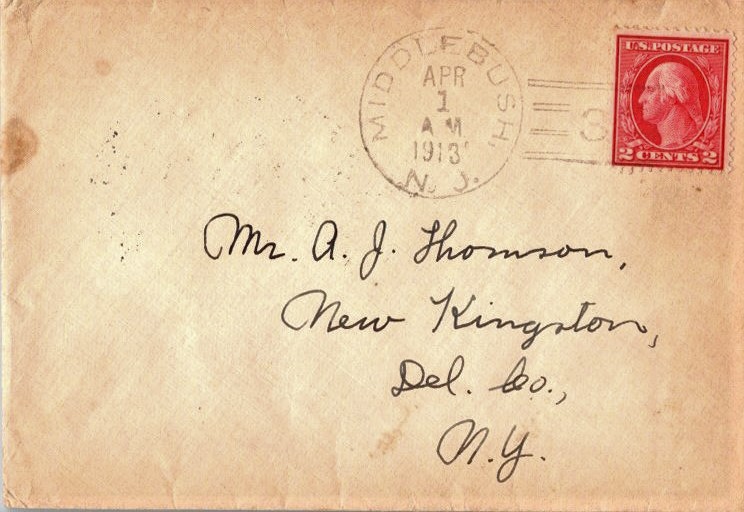 MIDDLEBUSH,
APR
1
A M
1913
N. J.
3
U.S. POSTAGE
2 CENTS 2
Mr. A. J. Thomson,
New Kingston,
Del. Co.,
N.Y.